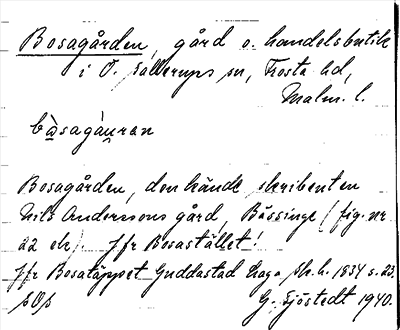 Bosagården, gård o. handelsbutik
i Ö. Sallerups sn, Frosta hd,
Malm. l.
bàsagàuran
Bosagården, den kände skribenten
Nils Anderssons gård, Bässinge (fig. nr
22 etc) Jfr Bosastället!
Jfr Bosatäppet Guddastad Haga Sk. h. 1834 s. 23.
G. Sjöstedt 1940.